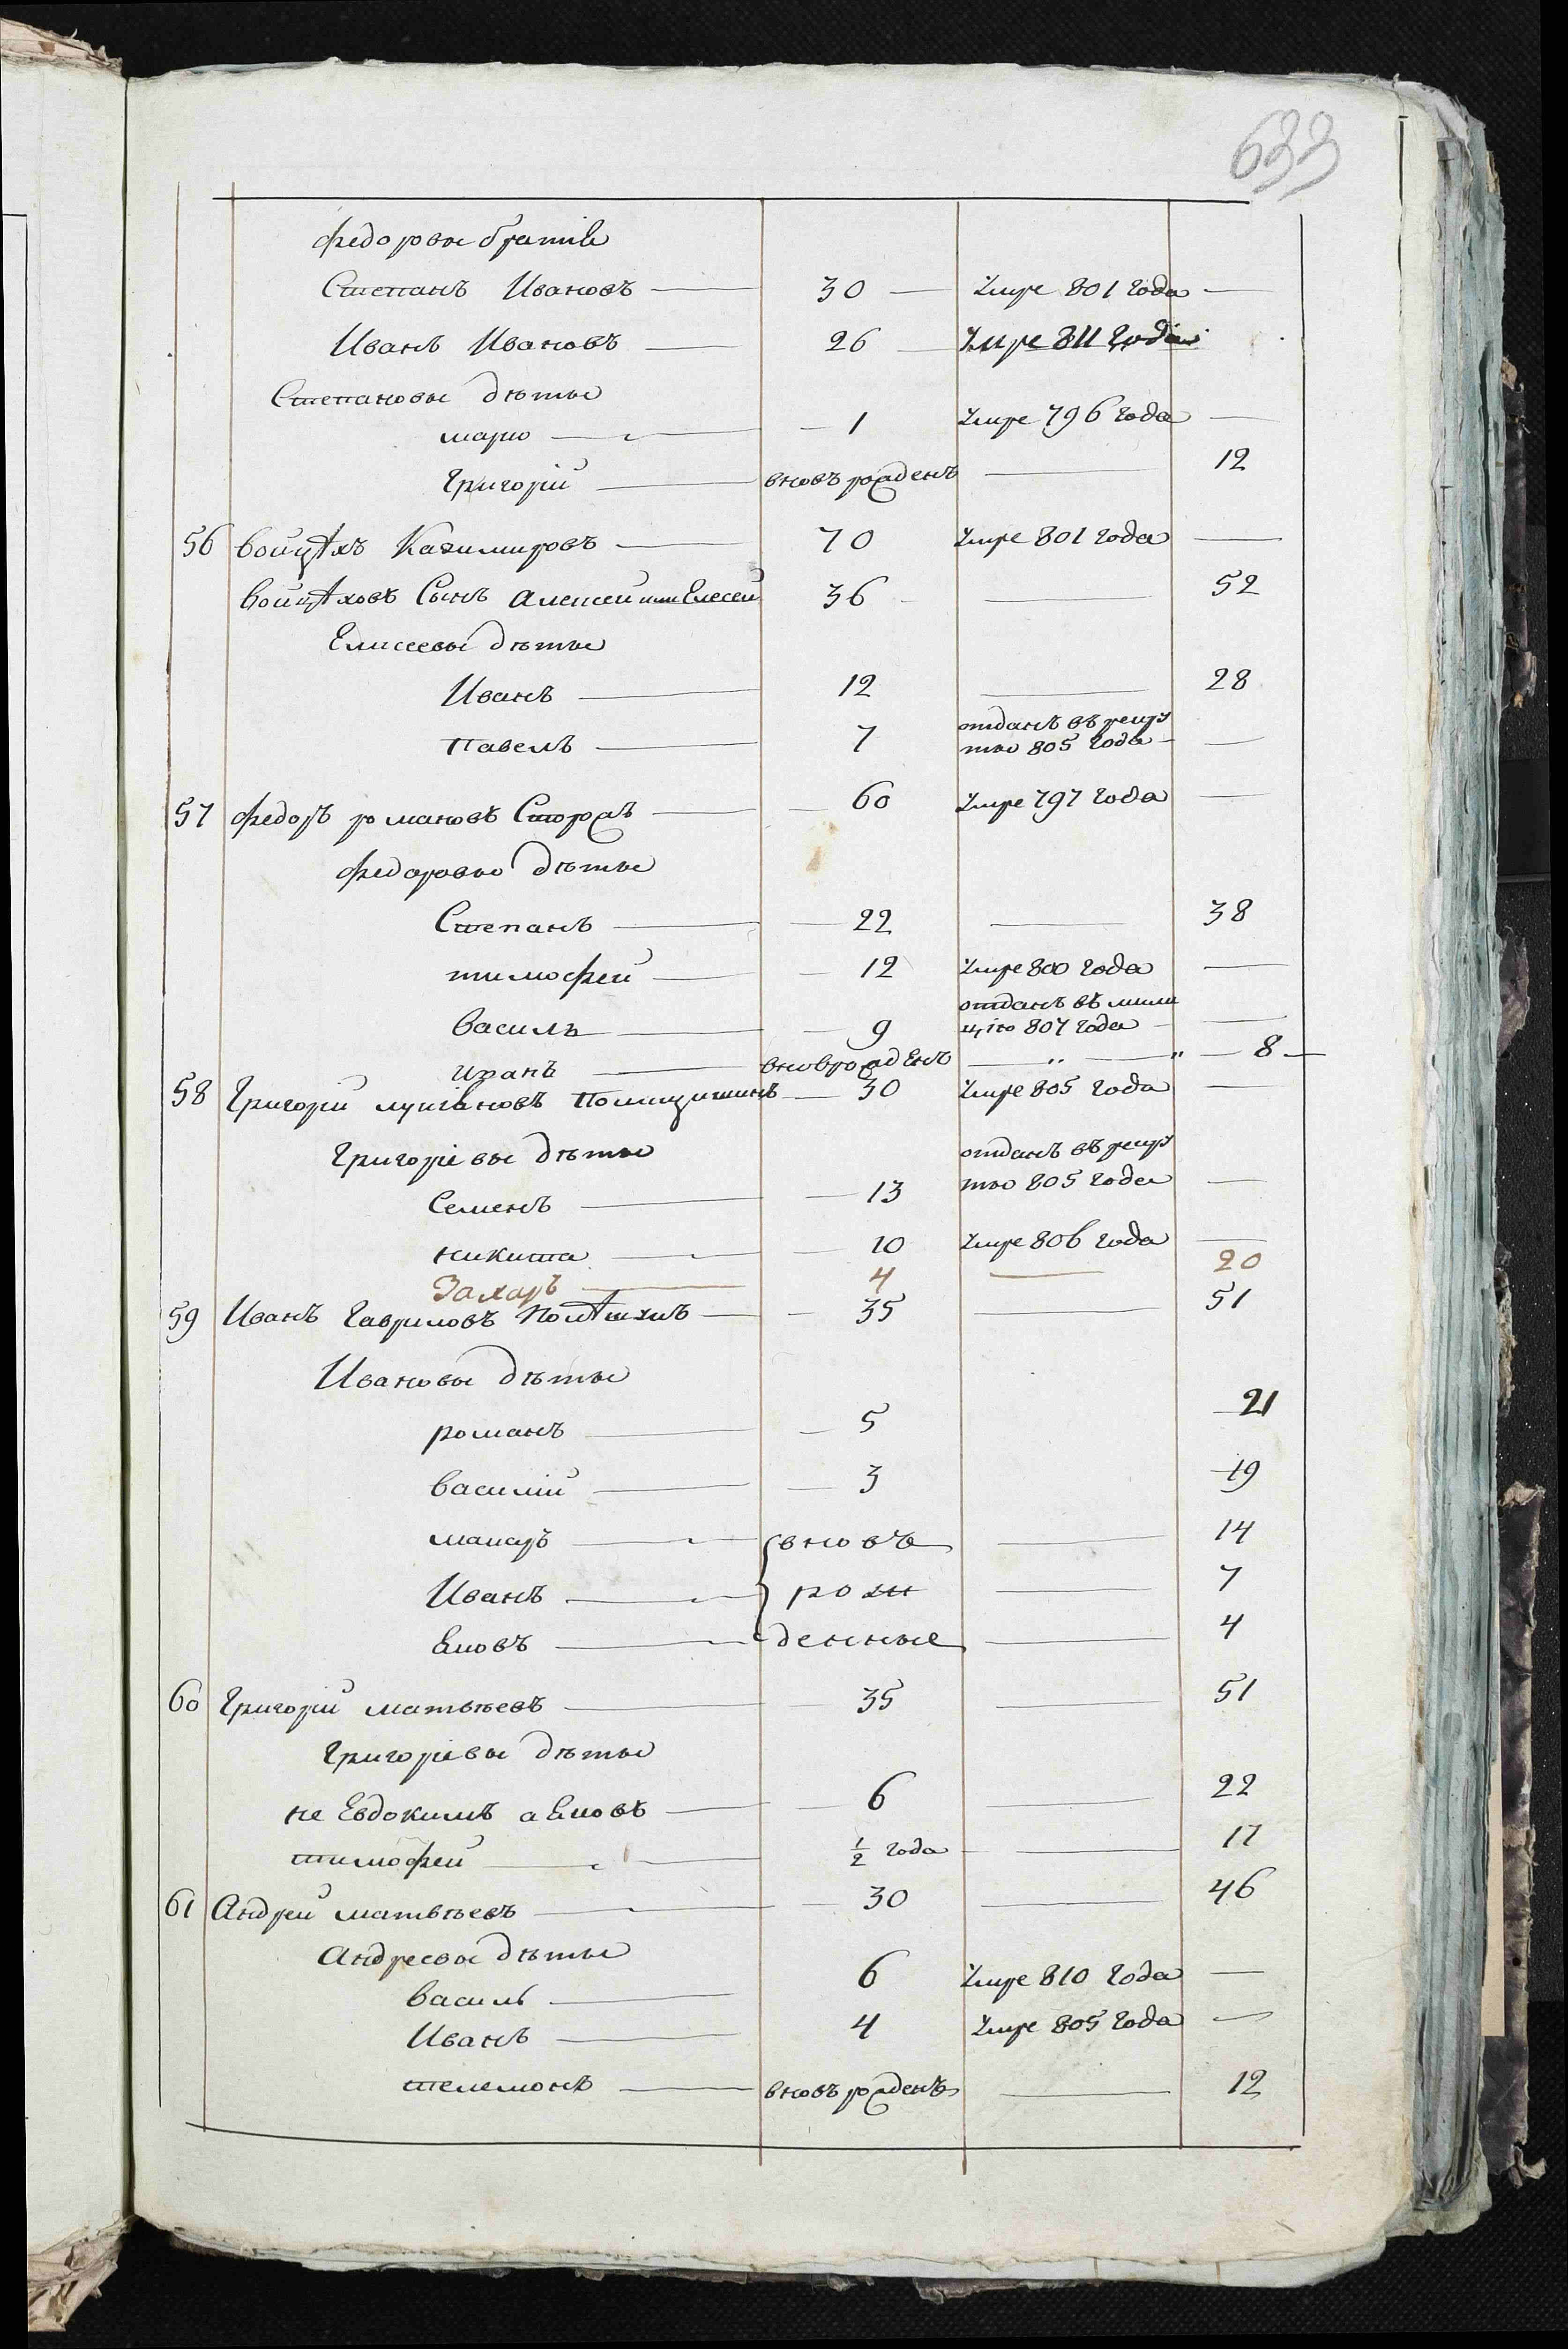 633
федоровы братiе
Степанъ Ивановъ — 30 — умре 801 года —
Иванъ Ивановъ — 26 — умре 811 года
Степановы дѣти
марко — 1 умре 796 года —
Григорiй — вновь рожденъ — 12
56 войцѣхъ Казимировъ — 70 умре 801 года —
войцѣховъ Сынъ Алексей или Елесей 36 — 52
Елисеевы дѣти
Иванъ — 12 — 28
Павелъ — 7 отданъ въ рекру
ты 805 года —
57 федоръ романовъ Сторожъ — 60 умре 797 года —
федоровы дѣти
Степанъ — 22 — 38
тимофей — 12 умре 800 года —
василь — 9 отданъ въ мили
цiю 807 года —
иванъ — вновьрожденъ — 8 —
58 Григорiй — 30 умре 805 года —
Григорiевы дѣти
Семенъ — 13 отданъ въ рекру
ты 805 года —
никита — 10 умре 806 года —
Захаръ — 4 — 20
59 Иванъ Гавриловъ — 35 — 51
Ивановы дѣти
романъ — 5 21
василiй — 3 19
макаръ — вновь — 14
Иванъ — рож — 7
Яковъ — денные — 4
60 Григорiй матвѣевъ — 35 — 51
Григорiевы дѣти
не Евдокимъ а Яковъ — 6 — 22
тимофей — 1/2 года — 17
61 Андрей матвѣевъ — 30 — 46
Андреевы дѣти
василь — 6 умре 810 года —
Иванъ — 4 умре 805 года —
телемонъ — вновь рожденъ — 12